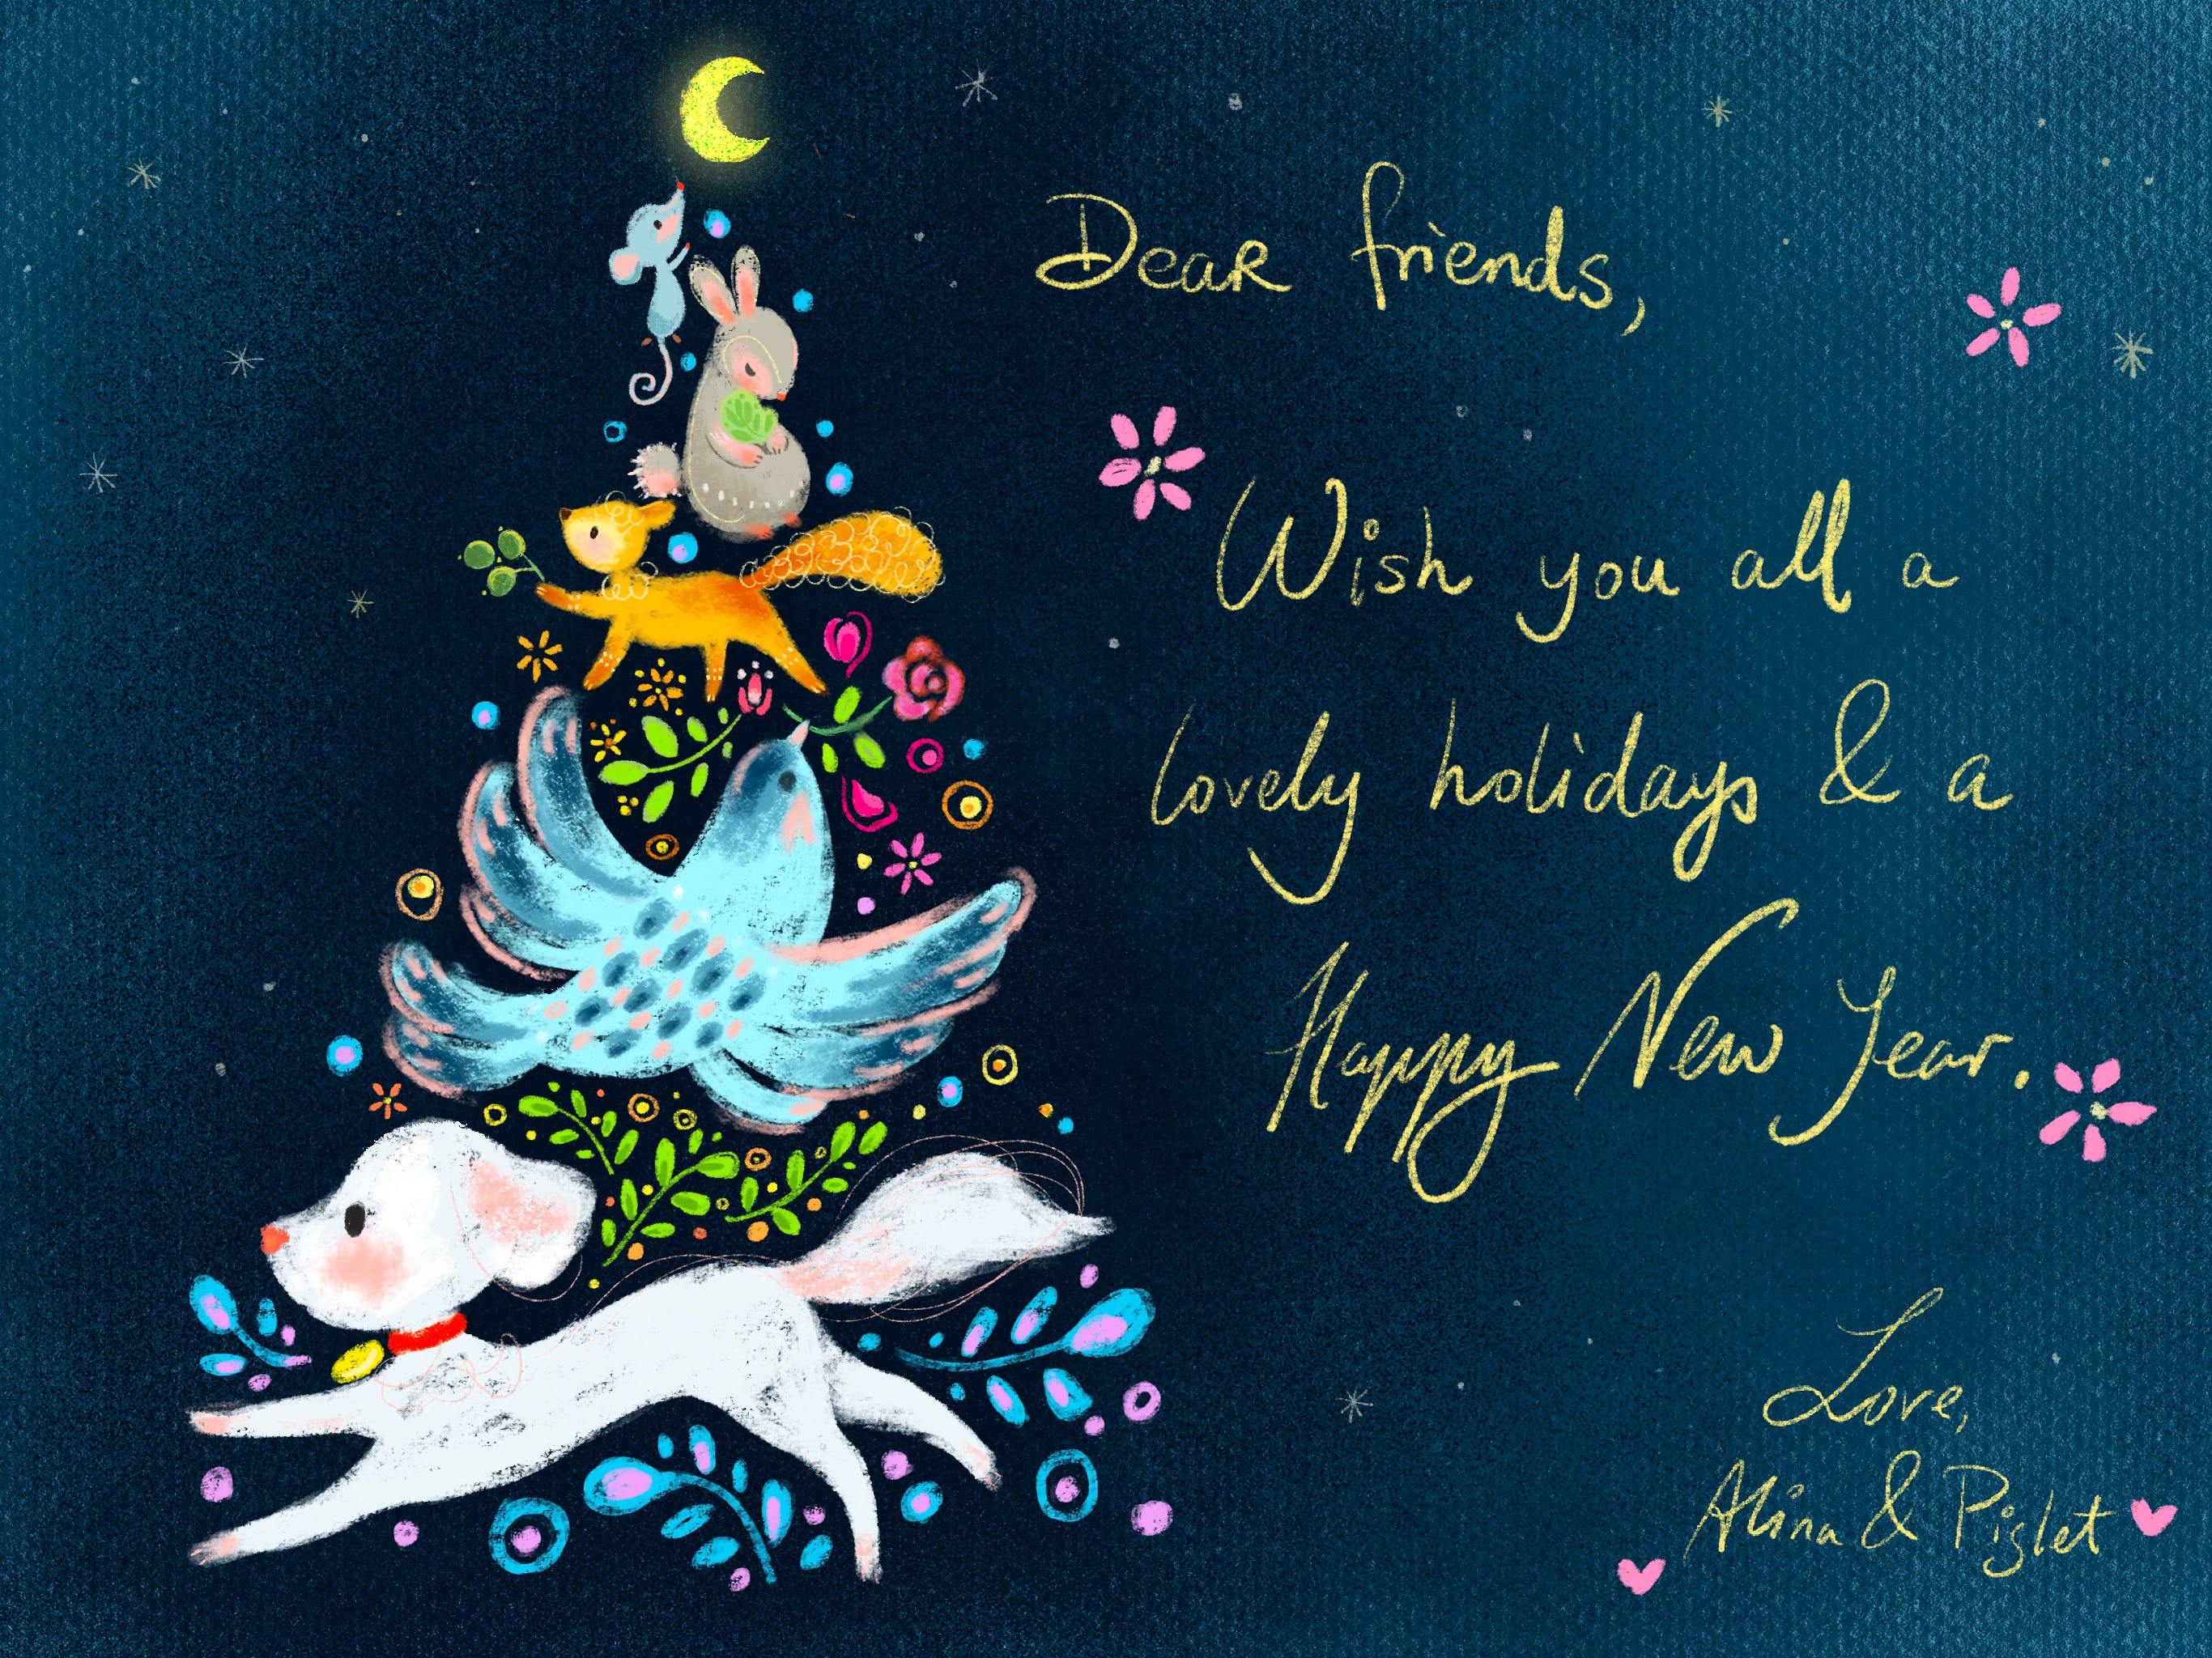 Dear friends,
Wish you all a
lovely holidays & a
Happy New Year.
Love,
Alina & Piglet